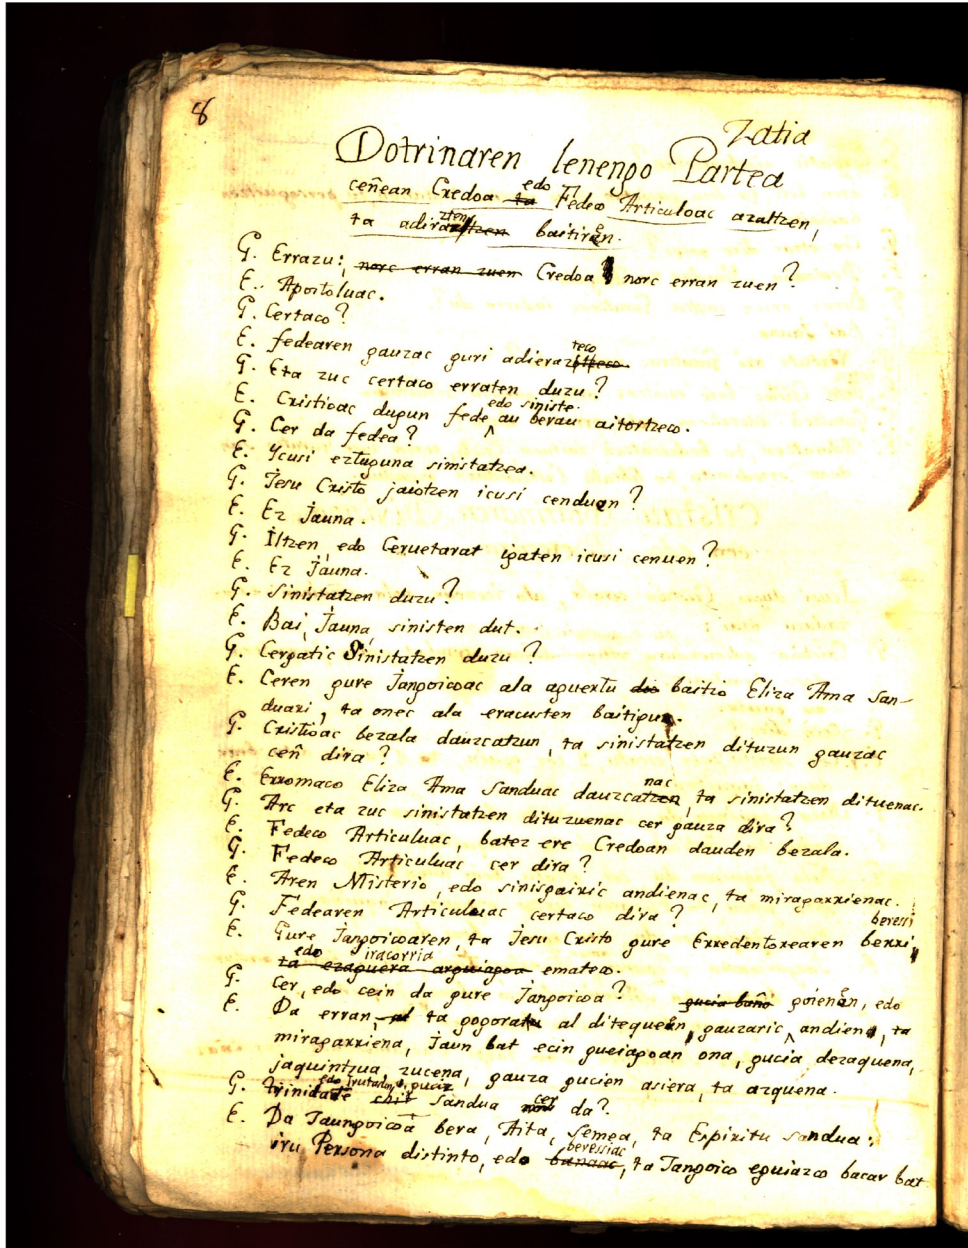 8
Zatia
Dotrinaren lenengo Partea
ceñean Credoa ta edo Fedeco Articuloac azaltzen,
ta adirazten baitiran.
G. Errazu: norc erran zuen Credoa norc erran zuen?
E. Apostoluac.
G. Certaco?
E. fedearen gauzac guri adierazteco
G. Eta zuc certaco erraten duzu?
E. Cristioac dugun fede edo siniste au berau aitortzeco.
G. Cer da fedea?
E. Ycusi eztuguna sinistatzea.
G. Jesu Cristo jaiotzen icusi cenduan?
E. Ez Jauna.
G. Iltzen, edo Ceruetarat igaten icusi cenuen?
E. Ez Jauna.
G. Sinistatzen duzu?
E. Bai, Jauna, sinisten dut.
G. Cergatic Sinistatzen duzu?
E. Ceren gure Jangoicoac ala aguertu dio baitio Eliza Ama San-
duari, ta onec ala eracusten baitigun.
G. Cristioac bezala dauzcatzun, ta sinistatzen dituzun gauzac
ceñ dira?
E. Erromaco Eliza Ama Sanduac dauzcatzen nac, ta sinistatzen dituenac.
G. Arc eta zuc sinistatzen dituzuenac cer gauza dira?
E. Fedeco Articuluac, batez ere Credoan dauden bezala.
G. Fedeco Articuluac cer dira?
E. Aren Misterio, edo sinisgairic andienac, ta miragarrienac.
G. Fedearen Articuluac certaco dira?
E. Gure Jangoicoaren, ta Jesu Cristo gure Erredentorearen berri beressi
ta ezaguera arguiagoa edo iracorria emateco.
G. Cer, edo cein da gure Jangoicoa?
E. Da erran, ta gogoratu al ditequeen gauzaric gucia baño goienan, edo andiena, ta
miragarriena, Jaun bat ecin gueiagoan ona, gucia dezaquena,
jaquintzua, zucena, gauza gucien asiera, ta azquena.
G. trinidade edo Sandua cer da?
E. Da Jaungoicoa bera, Aita, Semea, ta Espiritu Sandua:
iru Persona distinto, edo banaac beressiac, ta Jangoico eguiazco bacar bat